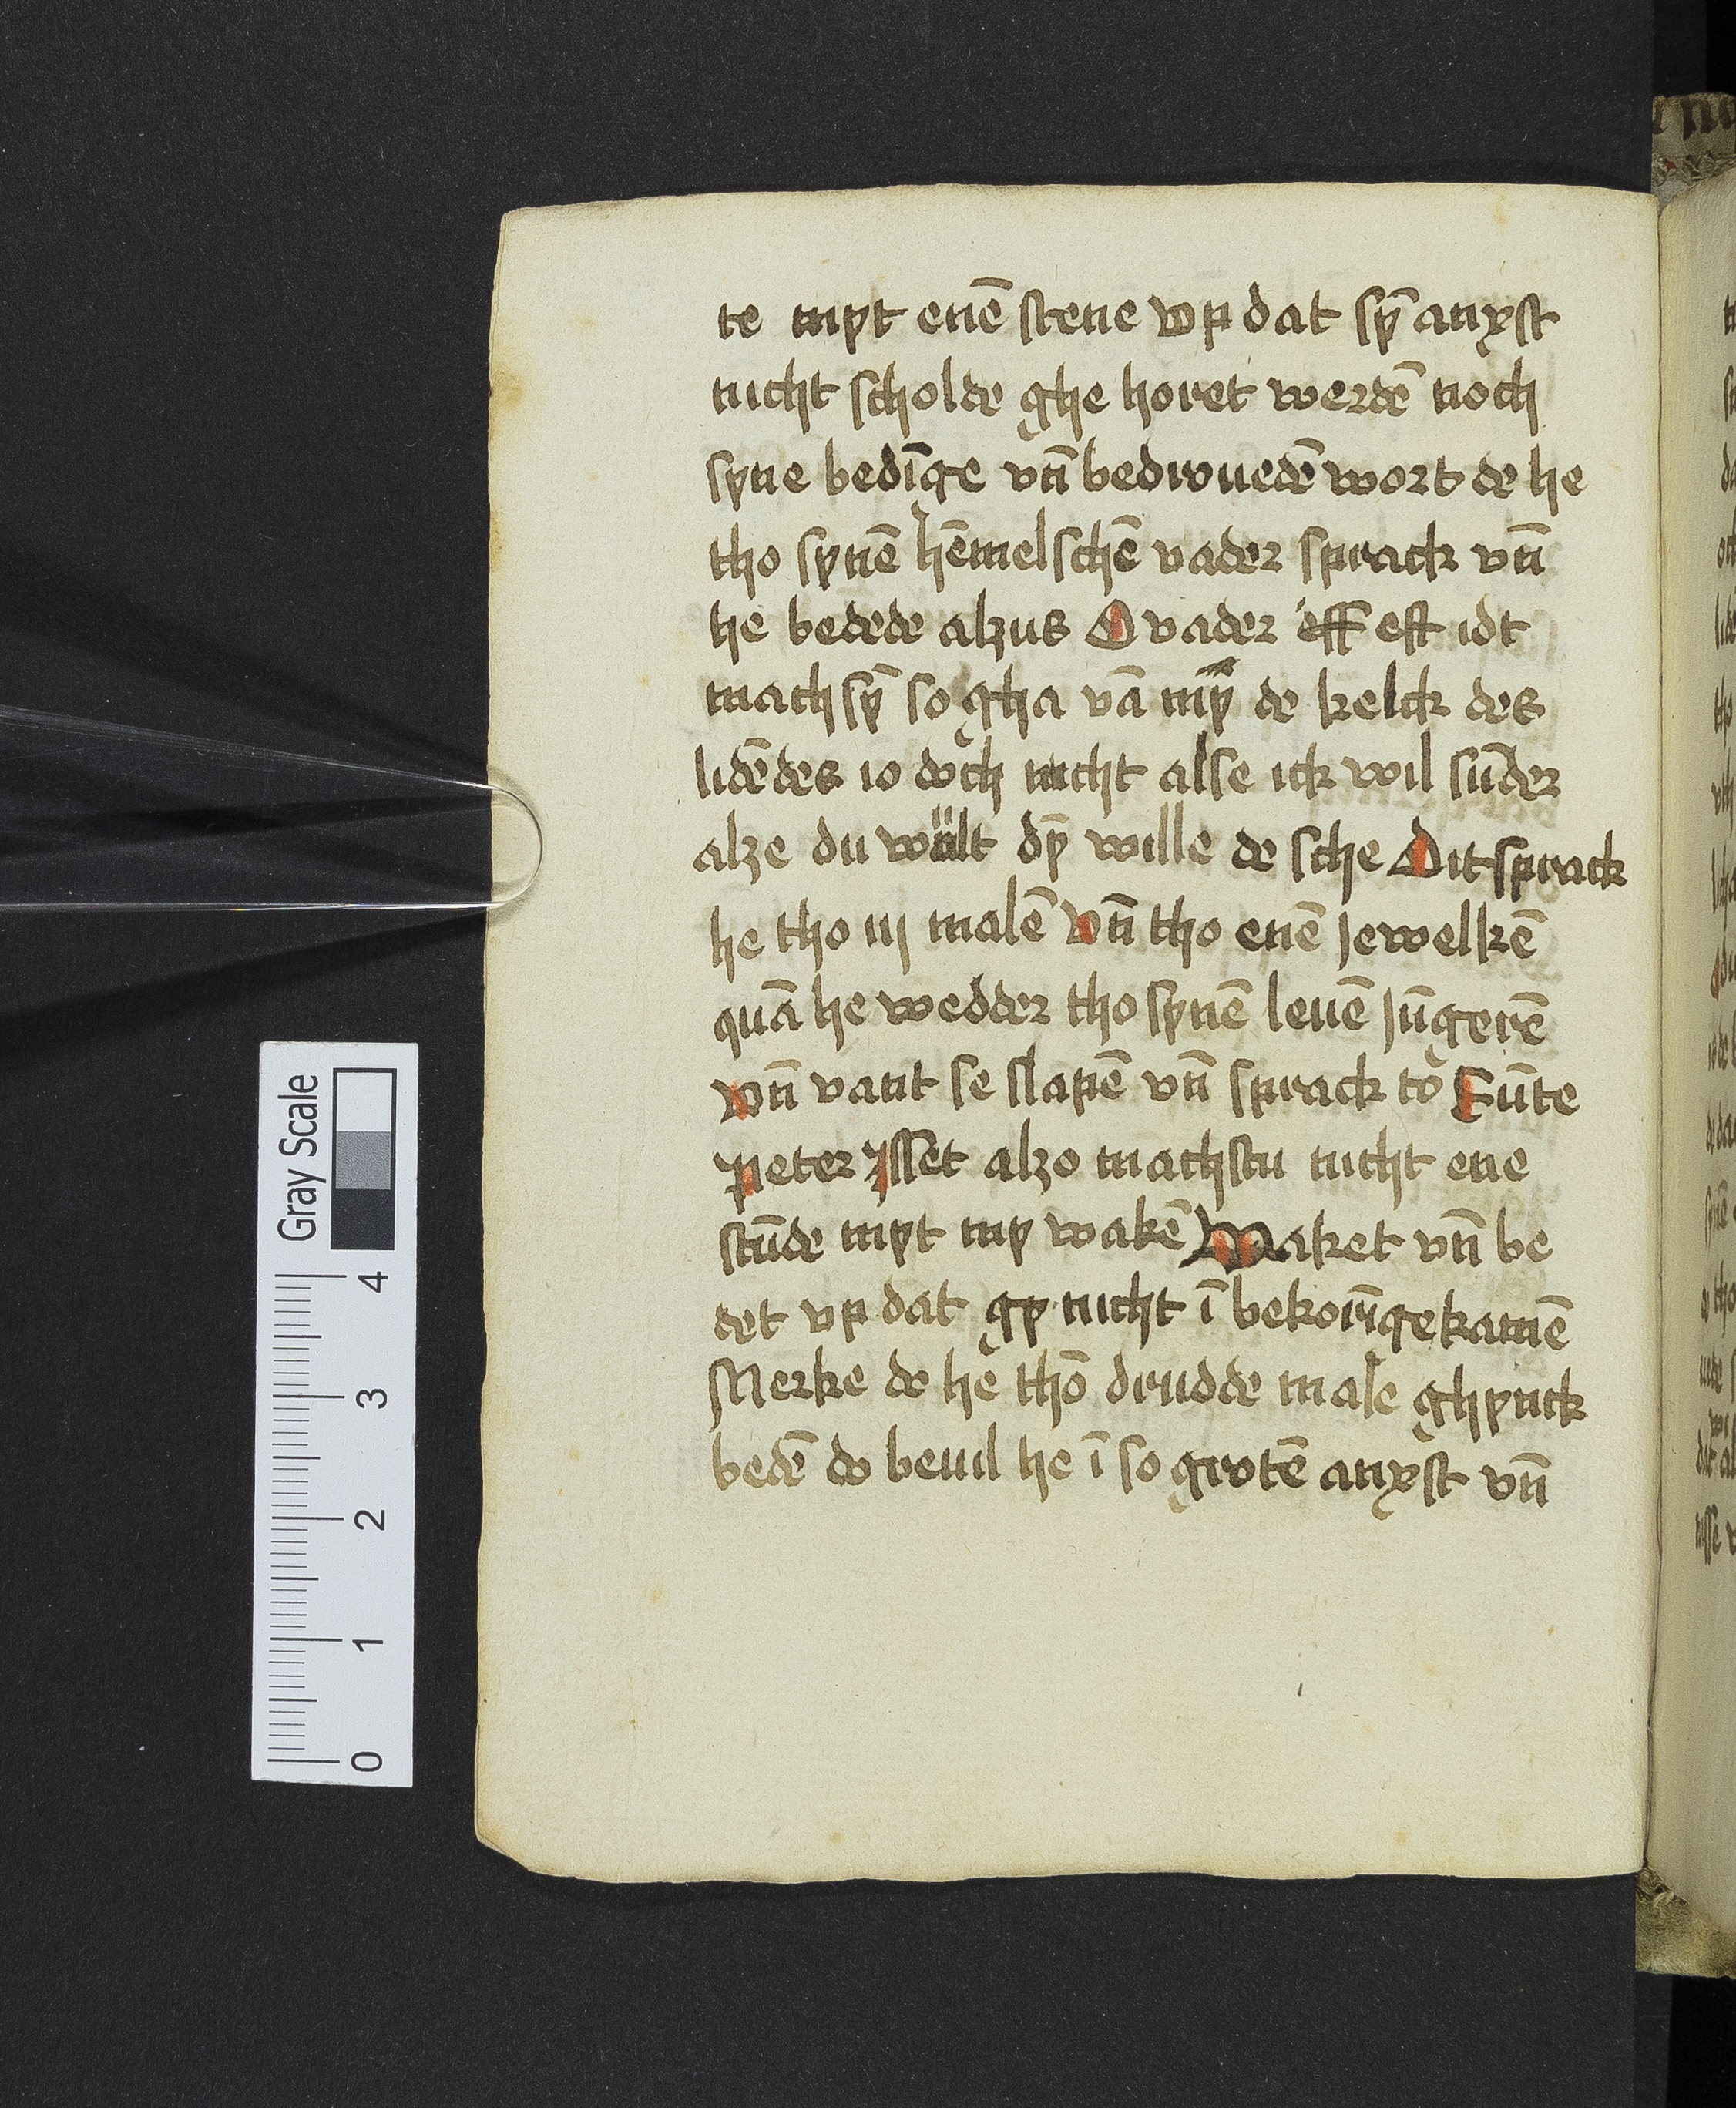 te myt enē stene vp dat sȳ anxst
nicht scholde ghe horet werdē noch
syne bedīge vn̄ bedrouedē wort de he
tho synē hēmelschē vader sprack vn̄
he bedede alzus O vader eff eft idt
mach sȳ so gha vā my de kelck des
lidēdes io doch nicht alse ick wil sūder
alze du wult dȳ wille de sche Dit sprack
he tho iij malē vn̄ tho enē jewelkē
quā he wedder tho synē leuē jūgerē
vn̄ vant se slapē vn̄ sprack to Sūte
peter Isset alzo machstu nicht ene
stūde myt my wakē Waket vn̄ be
det vp dat gy nicht ī bekorīge kamē
Merke do he tho drudde male ghynck
bedē do beuil he ī so grotē anxst vn̄
Gray Scale
4
3
2
1
0